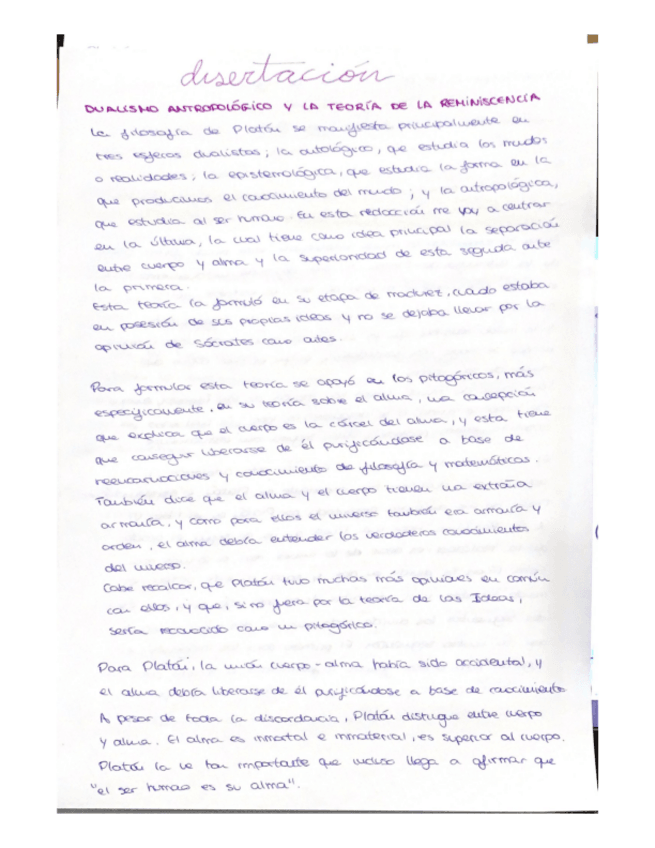 disertación
DUALISMO ANTROPOLÓGICO Y LA TEORÍA DE LA REMINISCENCIA
La filosofía de Platón se manifiesta principalmente en
tres esferas dualistas; la ontológico, que estudia los mundos
o realidades; la epistemológica, que estudia la forma en la
que producimos el conocimiento del mundo; y la antropológica,
que estudia al ser humano. En esta redacción me voy a centrar
en la última, la cual tiene como idea principal la separación
entre cuerpo y alma y la superioridad de esta segunda ante
la primera.
Esta teoría la formuló en su etapa de madurez, cuando estaba
en posesión de sus propias ideas y no se dejaba llevar por la
opinión de Sócrates como antes.
Para formular esta teoría se apoyó en los pitagóricos, más
específicamente, en su teoría sobre el alma, una concepción
que explica que el cuerpo es la cárcel del alma, y esta tiene
que conseguir liberarse de él purificándose a base de
reencarnaciones y conocimiento de filosofía y matemáticas.
También dice que el alma y el cuerpo tienen una extraña
armonía, y como para ellos el universo también era armonía y
orden, el alma debría entender los verdaderos conocimientos
del universo.
Cabe recalcar, que Platón tuvo muchas más opiniones en común
con ellos, y que, si no fuera por la teoría de las Ideas,
sería reconocido como un pitagórico.
Para Platón, la unión cuerpo-alma había sido accidental, y
el alma debría liberarse de él purificándose a base de conocimiento
A pesar de toda la discordancia, Platón distingue entre cuerpo
y alma. El alma es inmortal e inmaterial, es superior al cuerpo.
Platón la ve tan importante que incluso llega a afirmar que
"el ser humano es su alma".